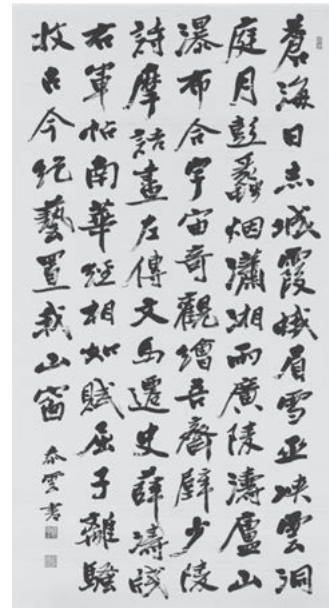 蒼海日赤城霞峨眉雪巫峽雲洞
庭月彭蠡烟瀟湘雨廣陵濤廬山
瀑布合宇宙奇觀繪吾齋壁少陵
詩摩詰畫左傳文馬遷史薛濤牋
右軍帖南華經相如賦屈子離騷
收古今絕藝置我山窗
泰雲書